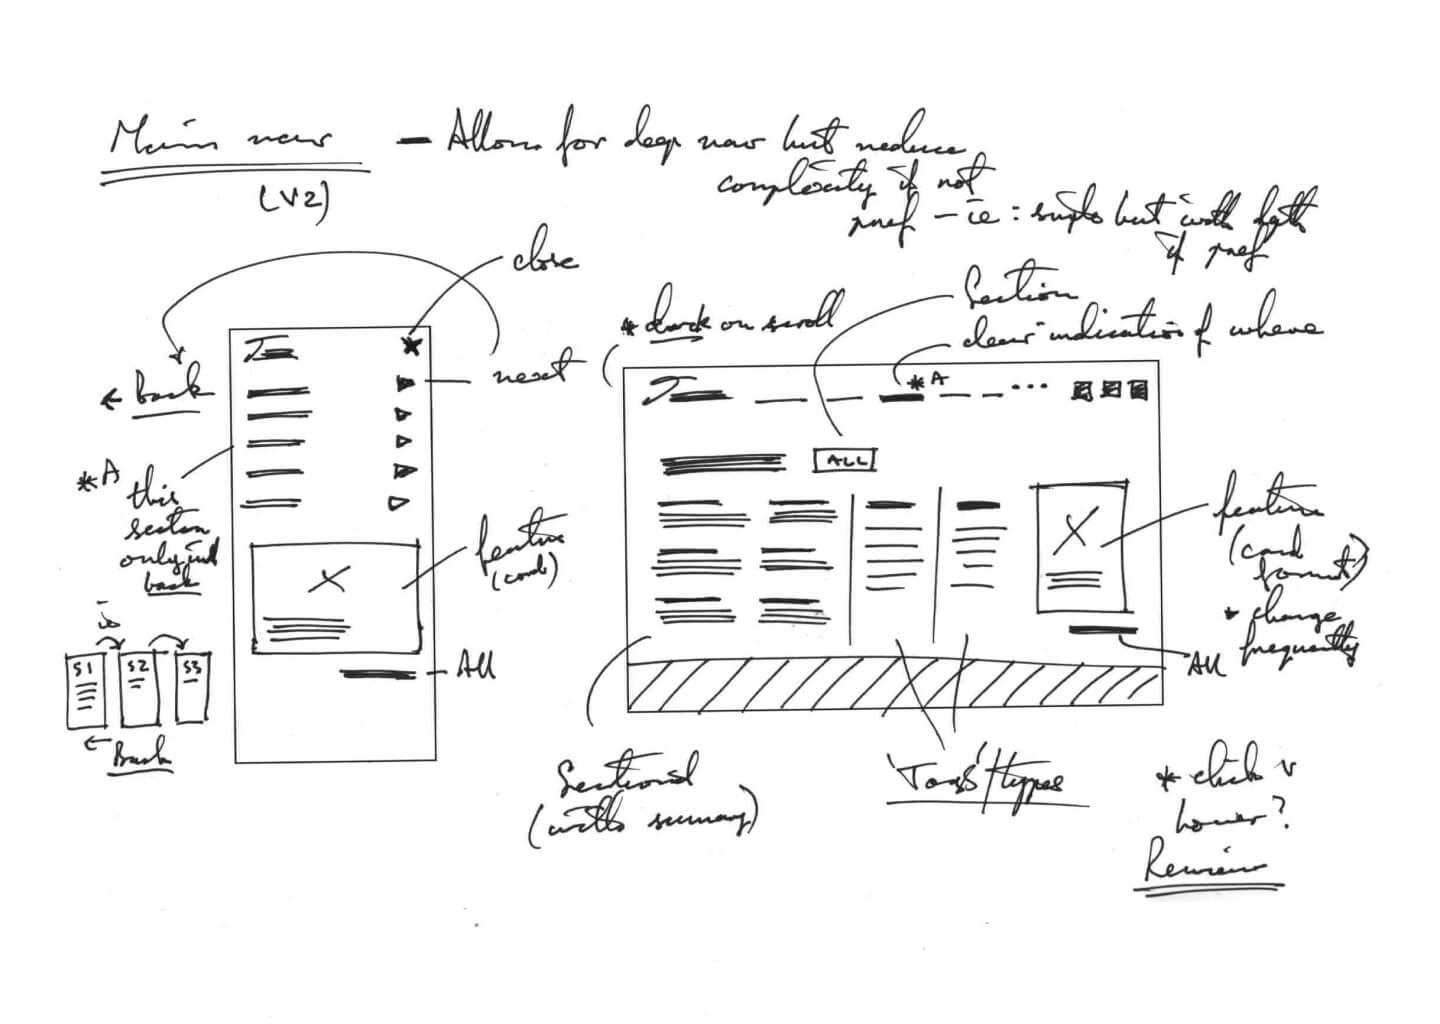 Main nav
(V2)
– Allow for deep nav but reduce
complexity if not
pref – ie: simple but with depth
if pref
close
← Back
next
*A this
section
only incl
back
ie
S1 S2 S3
← Back
feature
(card)
All
* dark on scroll
Section
clear indication of where
*A
ALL
feature
(card
format)
* change
frequently
All
Sectional
(with summary)
'Tags'/types
* click v
hover?
Review